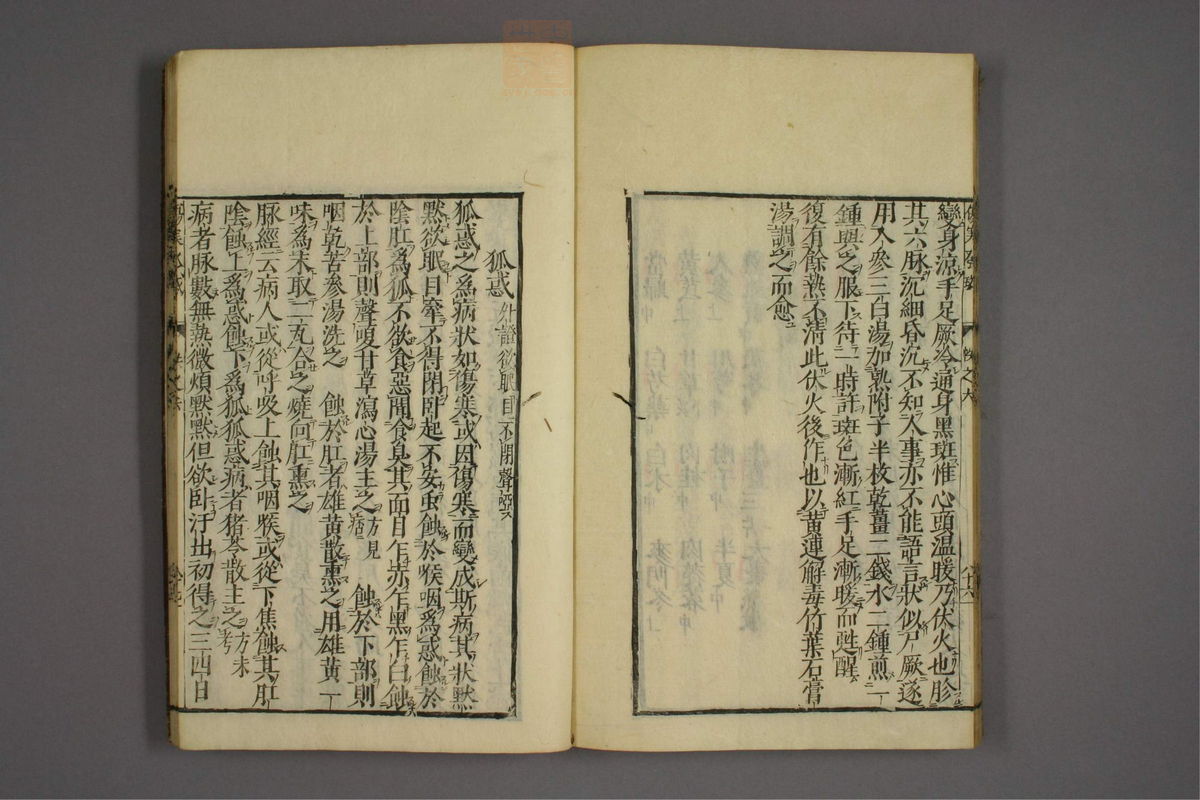 變身涼手足厥冷通身黑斑惟心頭溫暖乃伏火也胗
其六脉沉細昏沉不知人事亦不能語言狀似尸厥遂
用人參三白湯加熟附子半枚乾薑二錢水二鍾煎一
鍾與之服下待一時許斑色漸紅手足漸暖而甦醒
復有餘熱不清此伏火後作也以黃連解毒竹葉石膏
湯調之而愈
狐惑 外證欲眠目不閉聲啞
狐惑之爲病狀如傷寒或因傷寒而變成斯病其狀默
默欲眠目牽不得閉臥起不安虫蝕於喉咽爲惑蝕於
陰肛爲狐不欲食惡聞食息其面目乍赤乍黑乍白蝕
於上部則聲嗄甘草瀉心湯主之方見 蝕於下部則
咽乾苦參湯洗之 蝕於肛者雄黃散熏之用雄黃一
味爲末取二瓦合之燒向肛熏之
脉經云病人或從呼吸上蝕其咽喉或從下焦蝕其肛
陰蝕上爲惑蝕下爲狐狐惑病者猪苓散主之方未考
病者脉數無熱微煩默默但欲臥汗出初得之三四日